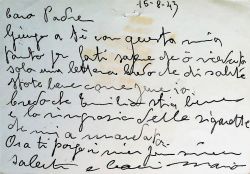 15-8-43
Caro Padre
Giungo a te con questa mia
per farti sapere che ò ricevuto
solo una lettera credo che di salute
state bene come pure io.
credo che Emilio stia bene
e lo ringrazio delle sigarette
che mi a mandato.
Ora ti porgo i miei più sinceri
saluti e baci Mario